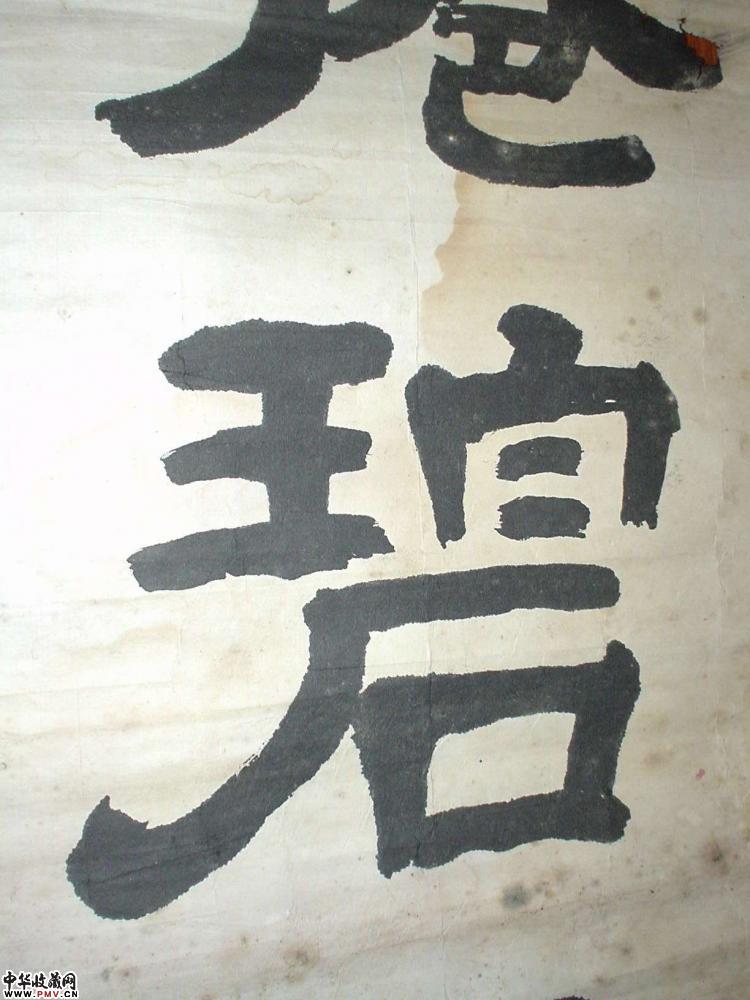 碧
中华收藏网
WWW.PMV.CN